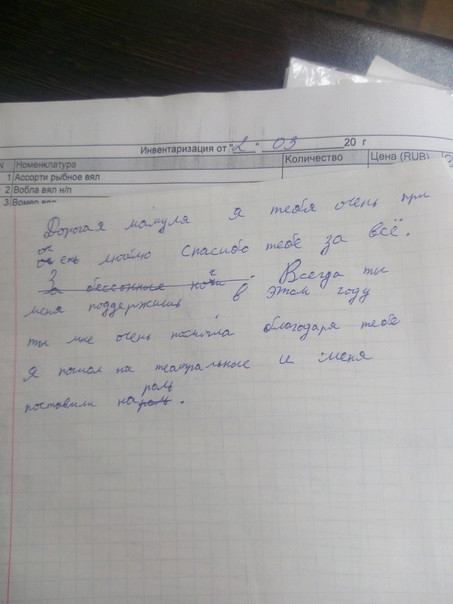 Инвентаризация от "2" 03 20 г
N Номенклатура Количество Цена (RUB)
1 Ассорти рыбное вял
2 Вобла вял н/п
3
Дорогая мамуля я тебя очень при
оч
оч ень люблю спасибо тебе за всё.
З
а бессонные ночи. Всегда ты
меня поддержишь в этом году
ты мне очень помогла благодаря тебе
Я пошол на театральное и меня
поставили на роль роль.